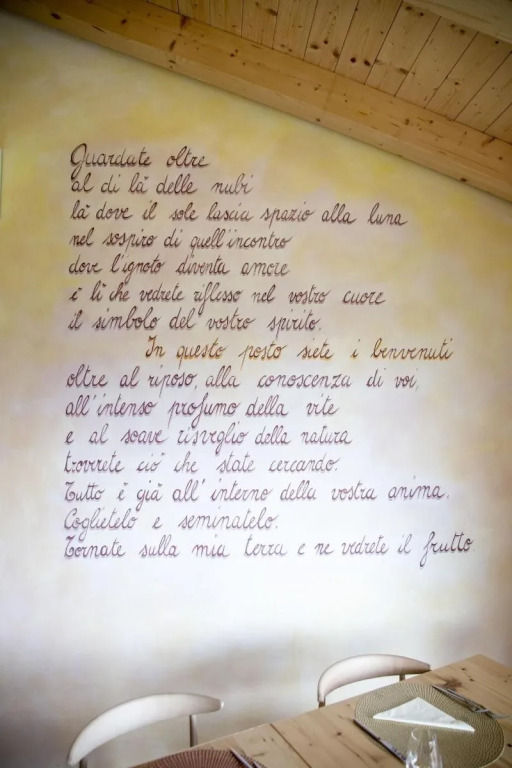 Guardate oltre
al di là delle nubi
là dove il sole lascia spazio alla luna
nel sospiro di quell'incontro
dove l'ignoto diventa amore
è lì che vedrete riflesso nel vostro cuore
il simbolo del vostro spirito.
In questo posto siete i benvenuti
oltre al riposo, alla conoscenza di voi,
all'intenso profumo della vite
e al soave risveglio della natura
troverete ciò che state cercando.
Tutto è già all'interno della vostra anima.
Coglietelo e seminatelo.
Tornate sulla mia terra e ne vedrete il frutto.